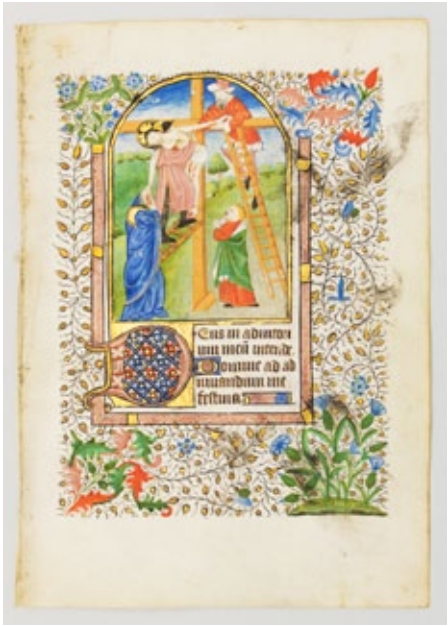 DEus in adiutori
um meū intende.
Domine ad ad
iuuandum me
festina.